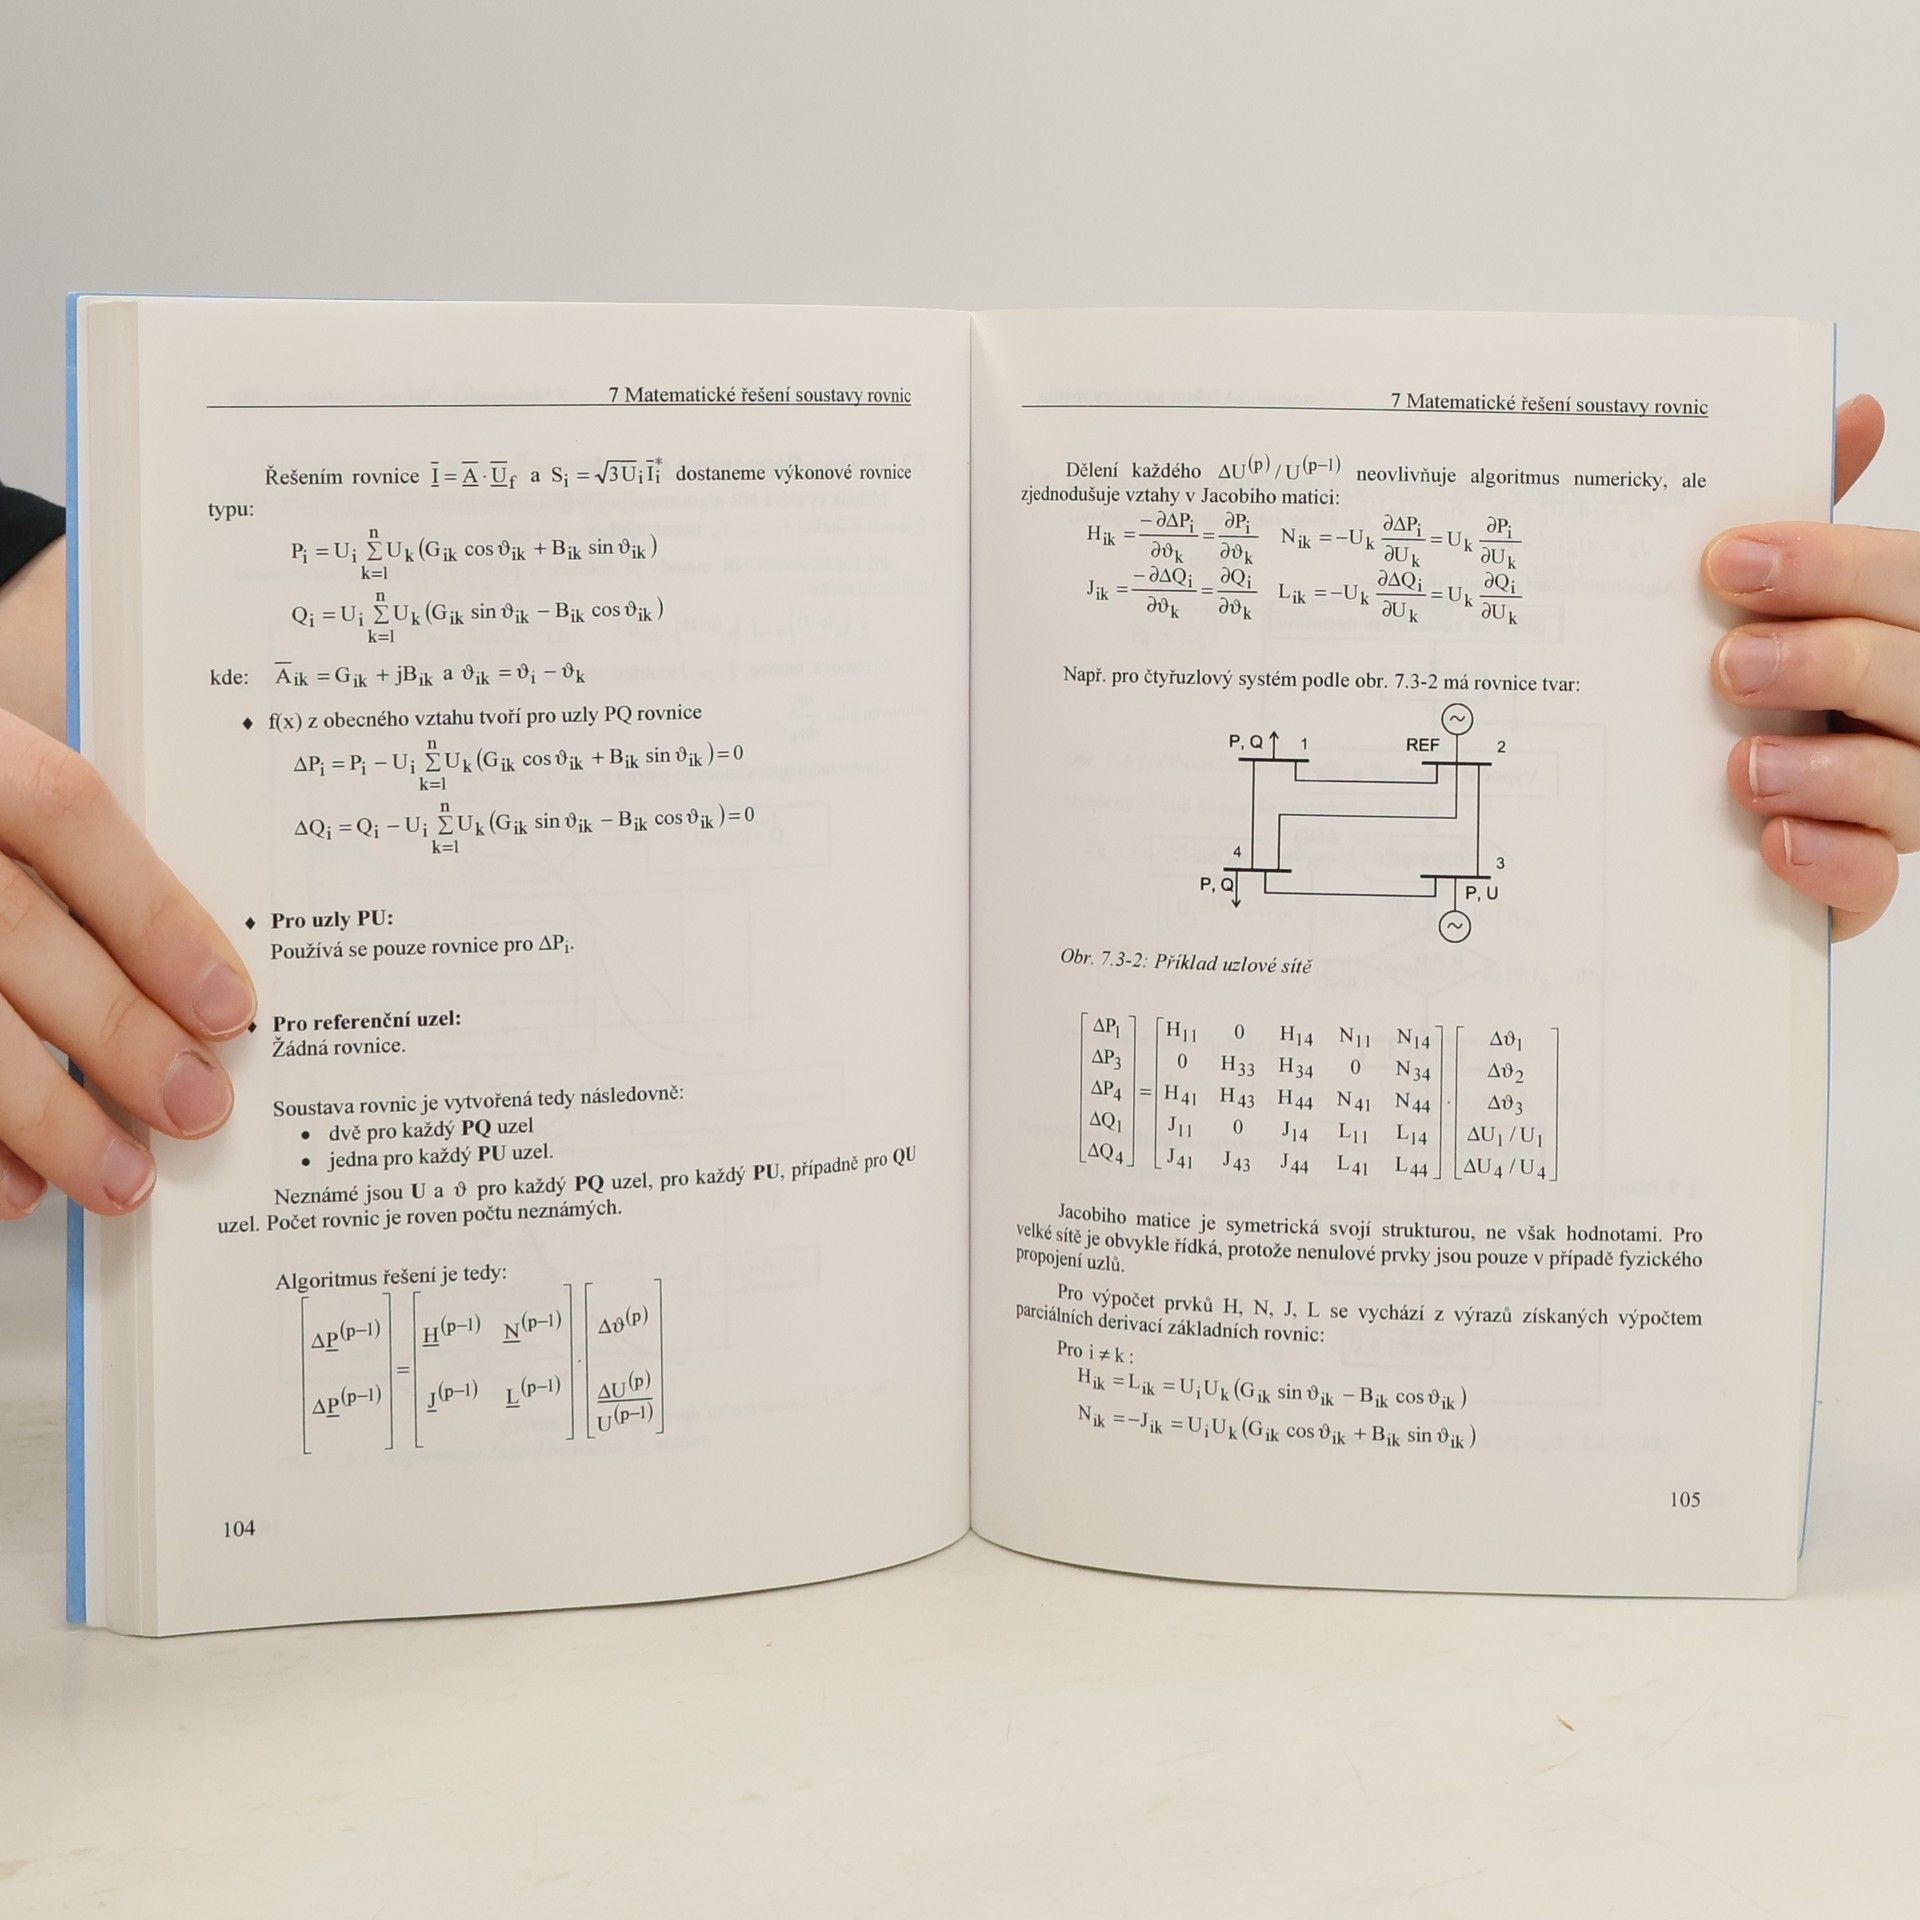 7 Matematické řešení soustavy rovnic
Řešením rovnice I̲̅ = A̲̅ · U̲̅f a Si = √3UiI̅i* dostaneme výkonové rovnice
typu:
Pi = Ui Σ(k=1..n) Uk (Gik cos ϑik + Bik sin ϑik)
Qi = Ui Σ(k=1..n) Uk (Gik sin ϑik − Bik cos ϑik)
kde: A̅ik = Gik + jBik a ϑik = ϑi − ϑk
♦ f(x) z obecného vztahu tvoří pro uzly PQ rovnice
ΔPi = Pi − Ui Σ(k=1..n) Uk (Gik cos ϑik + Bik sin ϑik) = 0
ΔQi = Qi − Ui Σ(k=1..n) Uk (Gik sin ϑik − Bik cos ϑik) = 0
♦ Pro uzly PU:
Používá se pouze rovnice pro ΔPi.
♦ Pro referenční uzel:
Žádná rovnice.
Soustava rovnic je vytvořená tedy následovně:
• dvě pro každý PQ uzel
• jedna pro každý PU uzel.
Neznámé jsou U a ϑ pro každý PQ uzel, pro každý PU, případně pro QU
uzel. Počet rovnic je roven počtu neznámých.
Algoritmus řešení je tedy:
[ΔP̲(p−1)] = [H̲(p−1) N̲(p−1)] · [Δϑ(p)]
[ΔP̲(p−1)] [J̲(p−1) L̲(p−1)] [ΔU(p) / U(p−1)]
104
7 Matematické řešení soustavy rovnic
Dělení každého ΔU(p)/U(p−1) neovlivňuje algoritmus numericky, ale
zjednodušuje vztahy v Jacobiho matici:
Hik = −∂ΔPi/∂ϑk = ∂Pi/∂ϑk Nik = −Uk ∂ΔPi/∂Uk = Uk ∂Pi/∂Uk
Jik = −∂ΔQi/∂ϑk = ∂Qi/∂ϑk Lik = −Uk ∂ΔQi/∂Uk = Uk ∂Qi/∂Uk
Např. pro čtyřuzlový systém podle obr. 7.3-2 má rovnice tvar:
~
P, Q 1 REF 2
4 3
P, Q P, U
~
Obr. 7.3-2: Příklad uzlové sítě
[ΔP1] [H11 0 H14 N11 N14] [Δϑ1]
[ΔP3] [0 H33 H34 0 N34] [Δϑ2]
[ΔP4] = [H41 H43 H44 N41 N44] · [Δϑ3]
[ΔQ1] [J11 0 J14 L11 L14] [ΔU1/U1]
[ΔQ4] [J41 J43 J44 L41 L44] [ΔU4/U4]
Jacobiho matice je symetrická svojí strukturou, ne však hodnotami. Pro
velké sítě je obvykle řídká, protože nenulové prvky jsou pouze v případě fyzického
propojení uzlů.
Pro výpočet prvků H, N, J, L se vychází z výrazů získaných výpočtem
parciálních derivací základních rovnic:
Pro i ≠ k :
Hik = Lik = UiUk (Gik sin ϑik − Bik cos ϑik)
Nik = −Jik = UiUk (Gik cos ϑik + Bik sin ϑik)
105